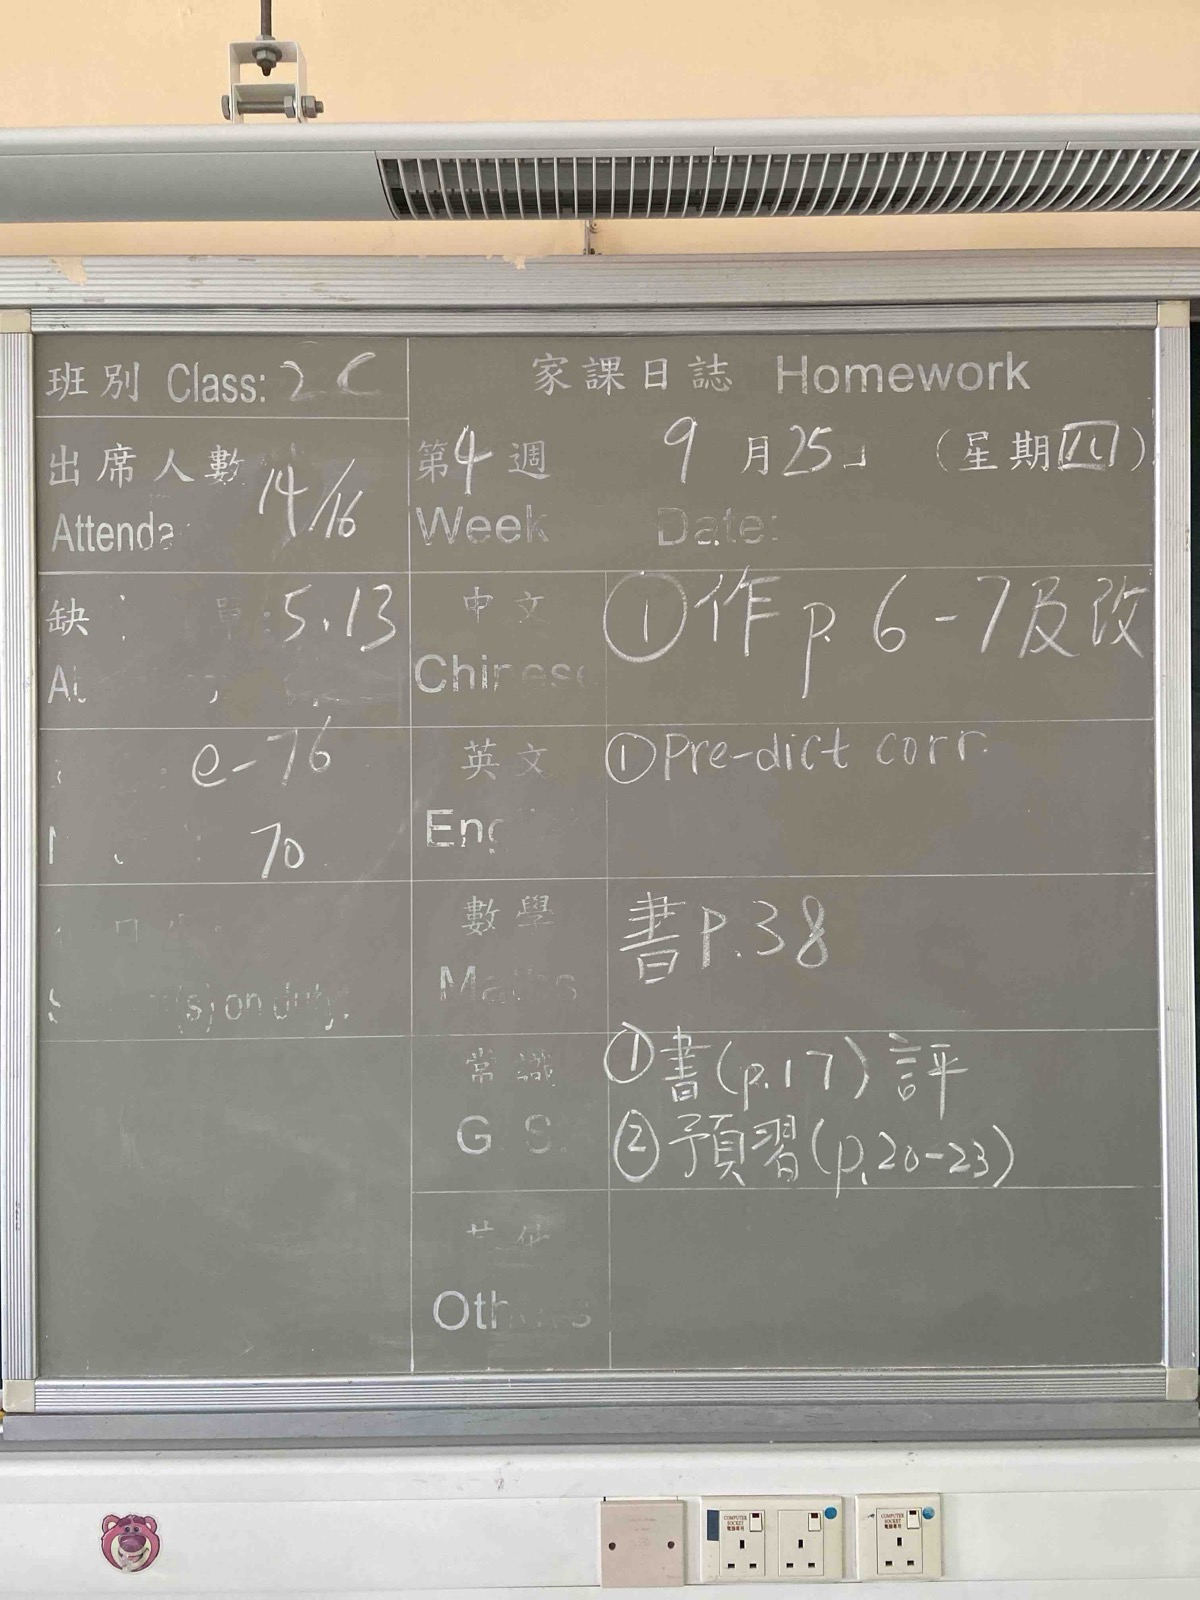 班別 Class: 2C
出席人數 14/16
Attenda
缺 5.13
e-76
70
(s) on duty:
家課日誌 Homework
第4週 9月25 (星期四)
Week Date:
中文 ①作 p. 6-7及改
Chinese
英文 ①Pre-dict corr.
Eng
數學 書P.38
Maths
常識 ①書(p.17)評
G.S. ②預習(p.20-23)
Others
COMPUTER SOCKET
COMPUTER SOCKET